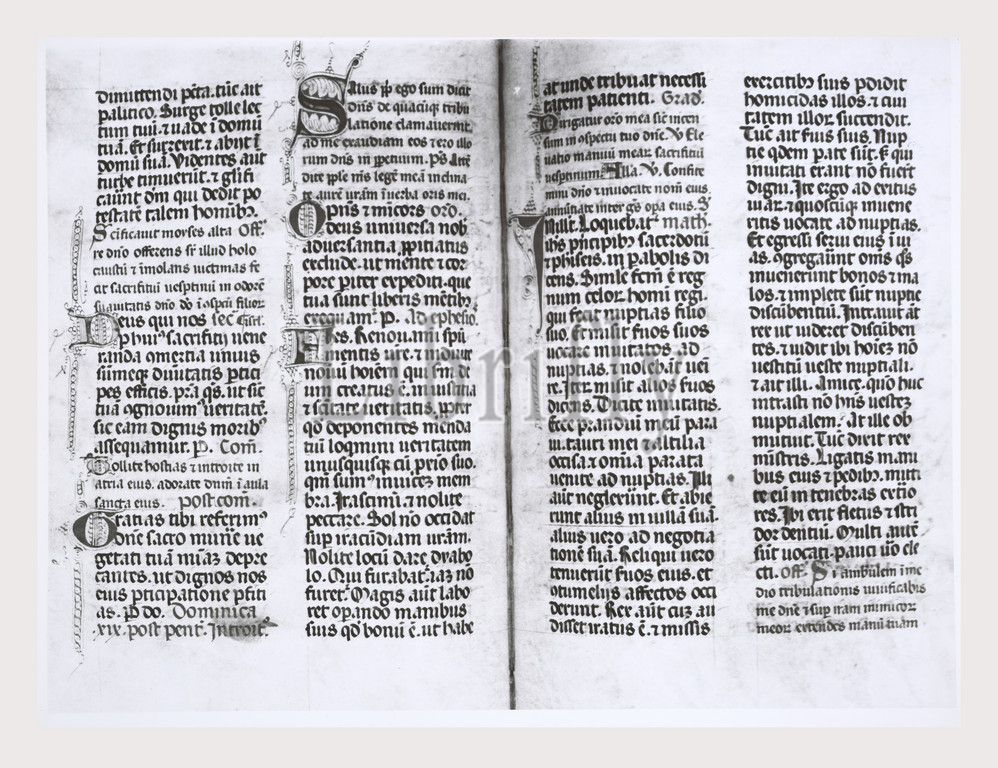 dimittendi pc̄ta. tūc ait
palitico. Surge tolle lec
tum tuū. ⁊ uade ī domū
tuā. Et surrexit. ⁊ abiit ī
domū suā. Videntes aut̄
turbe timuerūt. ⁊ glīfi
cauūt dm̄ qui dedit po
testatē talem homībꝫ.
Scificauit moyses alta Off̄.
re dn̄o offerens sr̄ illud holo
caustū ⁊ īmolans uictimas fe
cit sacrificiū uesptinū in odorē
suauitatis dn̄o dō ī
Deus qui nos
phuiꝰ sacrificij uene
randa ꝯmertia unius
sūmeqꝫ diuitatis ꝑtici
pes efficis. p̄ra q̄s. ut sic
tuā ognoruimꝰ ueritatē.
sic eam dignis moribꝫ
assequamur. P. Com̄.
Tollite hostias ⁊ introite in
atria eius. adorate dnm̄ ī aula
sancta eius. post com̄.
Gratias tibi referimꝰ
dn̄e sacro munē ue
getati tuā mīaꝫ depre
cantes. ut dignos nos
eius pticipatione pfiti
as. P do. Dominica
xix. post pent̄. Introit̄.
Salus pp̄ ego sum dicit
dn̄s de quacūqꝫ tribu
latione clamauerint
ad me exaudiam eos ⁊ ero illo
rum dn̄s in ꝑpetuum. p̄s Att̄e
dite pple m̄s legē meā inclina
te aurē urām ī uerba oris mei.
Opn̄s ⁊ mīcors oro.
deus uniuersa nob̄
aduersantia ꝓpitiatus
exclude. ut mente ⁊ cor
pore ꝑiter expediti. que
tua sunt liberis mētibꝫ
exequam̄. P. Ad ephesio.
Fes. Renouamī spū
mentis ur̄e. ⁊ induite
nouū hoīem qui sm̄ de
um creatus ē. ī iusticia
⁊ scītate ueritatis. ꝓpter
qd̄ deponentes menda
tiū loqmini ueritatem
unusquisqꝫ cū ꝓxīo suo.
qm̄ sumꝰ inuicēꝫ mem
bra. Irascimī. ⁊ nolite
peccare. Sol nō occidat
sup iracūdiam urām.
Nolite locū dare dyabo
lo. Qui furabat̄. iaꝫ nō
furet̄. Magis aut̄ labo
ret opando manibus
suis qd̄ bonū ē. ut habe
at unde tribuat necessi
tatem patienti. Grad̄.
Dirigatur orō mea sic̄ incen
sum in ꝯspectu tuo dn̄e. V̄ Ele
uatio manuū mearꝫ sacrificiū
uesptinum. Alla. V̄. Confite
mini dn̄o ⁊ inuocate nomē eius.
annūtiate inter gēs opa eius. S
Inillt̄. Loquebat̄ math̄.
ih̄s ꝑncipibꝫ sacerdotū
⁊ phīseis. in ꝑabolis di
cens. Simile fcm̄ ē reg
num celoꝝ homī regi.
qui fecit nuptias filio
suo. Et misit suos suos
uocare inuitatos ad
nuptias. ⁊ nolebāt ueī
re. Iteꝝ misit alios suos
dicens. Dicite inuitatis.
Ecce prandiū meū para
ui. tauri mei ⁊ altilia
occisa. ⁊ om̄ia parata
uenite ad nuptias. Illi
aūt neglexūnt. Et abie
runt alius in uillā suā.
alius uero ad negotia
tionē suā. Reliqui uero
tenuerūt suos eius. et
ꝯtumeliis affectos occi
derunt. Rex aūt cuꝫ au
disset iratus ē. ⁊ missis
exercitibꝫ suis pdidit
homicidas illos. ⁊ ciui
tatem illoꝝ succendit.
Tūc ait suis suis. Nup
tie qdem ꝑate sūt. s qui
inuitati erant nō fuer̄t
digni. Ite ergo ad exitus
uiaꝝ. ⁊ quoscūqꝫ inuene
ritis uocate ad nuptias.
Et egressi serui eius ī ui
as. ꝯgregauūt om̄s q̄s
inuenerunt bonos ⁊ ma
los. ⁊ implete sūt nuptie
discūbentiū. Intrauit aūt
rex ut uideret discūben
tes. ⁊ uidit ibi hoīeꝫ nō
uestitū ueste nuptiali.
⁊ ait illi. Amice. quō huc
intrasti nō hn̄s uesteꝫ
nuptialem. At ille ob
mutuit. Tūc dixit rex
mīstris. Ligatis mani
bus eius ⁊ pedibꝫ. mitti
te eū in tenebras extio
res. Ibi erit fletus ⁊ stri
dor dentiū. Multi autē
sūt uocati. pauci uō ele
cti. Off̄. Si ambulem ī me
dio tribulationis uiuificabis
me dn̄e ⁊ sup iram inimicoꝝ
meoꝝ extendes manū tuam
Librifly